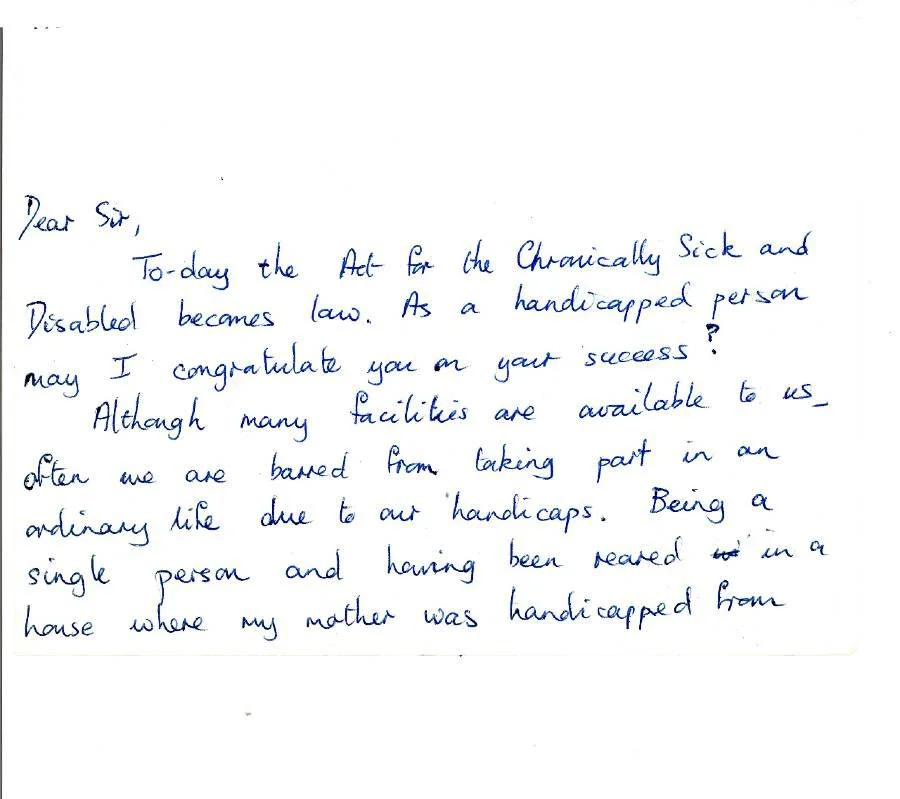 Dear Sir,
To-day the Act for the Chronically Sick and
Disabled becomes law. As a handicapped person
may I congratulate you on your success?
Although many facilities are available to us_
often we are barred from taking part in an
ordinary life due to our handicaps. Being a
single person and having been reared in a
house where my mother was handicapped from